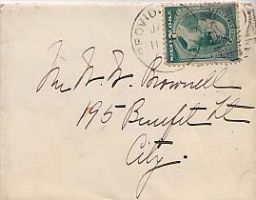 PROVID
Mr. W. W. Brownell
195 Benefit St
City.